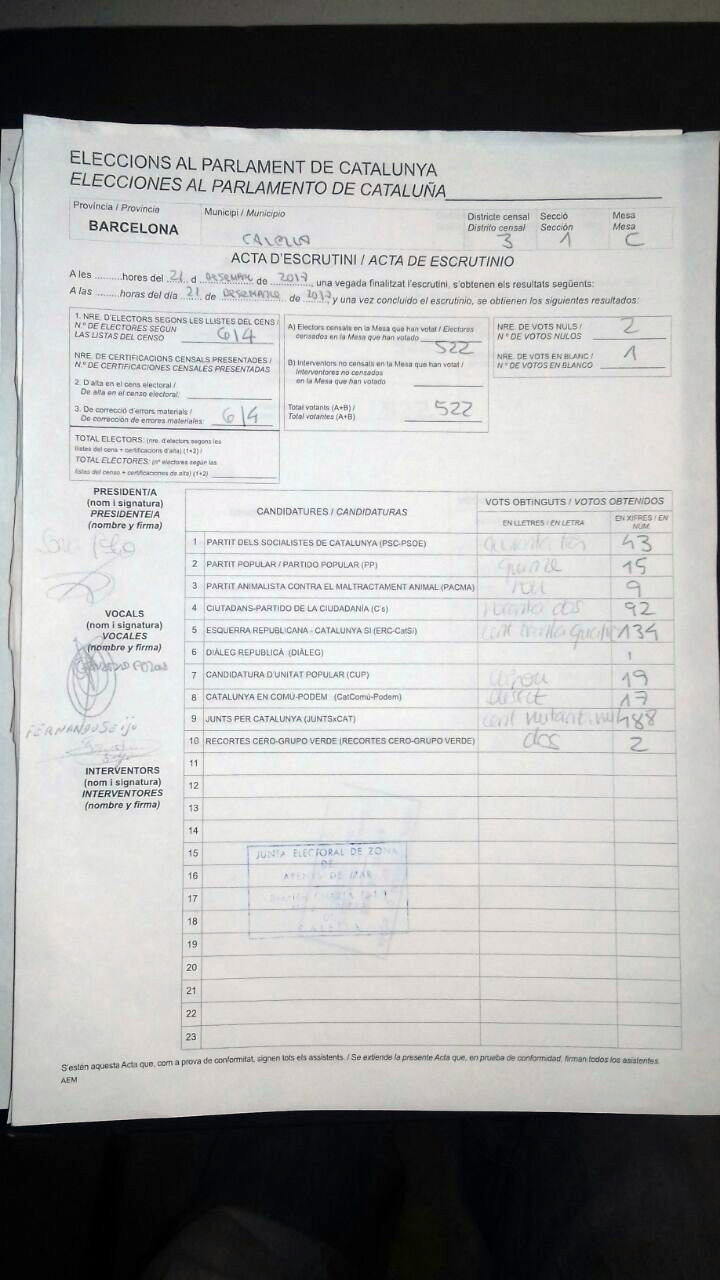 ELECCIONS AL PARLAMENT DE CATALUNYA
ELECCIONES AL PARLAMENTO DE CATALUÑA
Província / Provincia
Municipi / Municipio
Districte censal Secció Mesa
Distrito censal Sección Mesa
BARCELONA
CALELLA 3 1 C
ACTA D'ESCRUTINI / ACTA DE ESCRUTINIO
A les ..........hores del 21 d DESEMBRE de 2017, una vegada finalitzat l'escrutini, s'obtenen els resultats següents:
A las ..........horas del día 21 de DESEMBRE de 2017, y una vez concluido el escrutinio, se obtienen los siguientes resultados:
1. NRE. D'ELECTORS SEGONS LES LLISTES DEL CENS /
N.º DE ELECTORES SEGÚN
LAS LISTAS DEL CENSO 614
NRE. DE CERTIFICACIONS CENSALS PRESENTADES /
N.º DE CERTIFICACIONES CENSALES PRESENTADAS
2. D'alta en el cens electoral /
De alta en el censo electoral:
3. De correcció d'errors materials /
De corrección de errores materiales: 614
TOTAL ELECTORS: (nre. d'electors segons les
llistes del cens + certificacions d'alta) (1+2) /
TOTAL ELECTORES: (nº electores según las
listas del censo + certificaciones de alta) (1+2)
A) Electors censats en la Mesa que han votat / Electores
censados en la Mesa que han votado 522
B) Interventors no censats en la Mesa que han votat /
Interventores no censados
en la Mesa que han votado
Total votants (A+B) /
Total votantes (A+B) 522
NRE. DE VOTS NULS /
N.º DE VOTOS NULOS 2
NRE. DE VOTS EN BLANC /
N.º DE VOTOS EN BLANCO 1
PRESIDENT/A
(nom i signatura)
PRESIDENTE/A
(nombre y firma)
VOCALS
(nom i signatura)
VOCALES
(nombre y firma)
FERNANDO Seijo
INTERVENTORS
(nom i signatura)
INTERVENTORES
(nombre y firma)
CANDIDATURES / CANDIDATURAS
VOTS OBTINGUTS / VOTOS OBTENIDOS
EN LLETRES / EN LETRA
EN XIFRES / EN NÚM.
1 PARTIT DELS SOCIALISTES DE CATALUNYA (PSC-PSOE) 43
2 PARTIT POPULAR / PARTIDO POPULAR (PP) quinze 15
3 PARTIT ANIMALISTA CONTRA EL MALTRACTAMENT ANIMAL (PACMA) nou 9
4 CIUTADANS-PARTIDO DE LA CIUDADANÍA (C's) noranta dos 92
5 ESQUERRA REPUBLICANA - CATALUNYA SÍ (ERC-CatSí) cent trenta quatre 134
6 DIÀLEG REPUBLICÀ (DIÀLEG)
7 CANDIDATURA D'UNITAT POPULAR (CUP) 19
8 CATALUNYA EN COMÚ-PODEM (CatComú-Podem) disset 17
9 JUNTS PER CATALUNYA (JUNTSxCAT) 188
10 RECORTES CERO-GRUPO VERDE (RECORTES CERO-GRUPO VERDE) dos 2
11
12
13
14
15
16
17
18
19
20
21
22
23
JUNTA ELECTORAL DE ZONA
DE
ARENYS DE MAR
S'estén aquesta Acta que, com a prova de conformitat, signen tots els assistents. / Se extiende la presente Acta que, en prueba de conformidad, firman todos los asistentes.
AEM